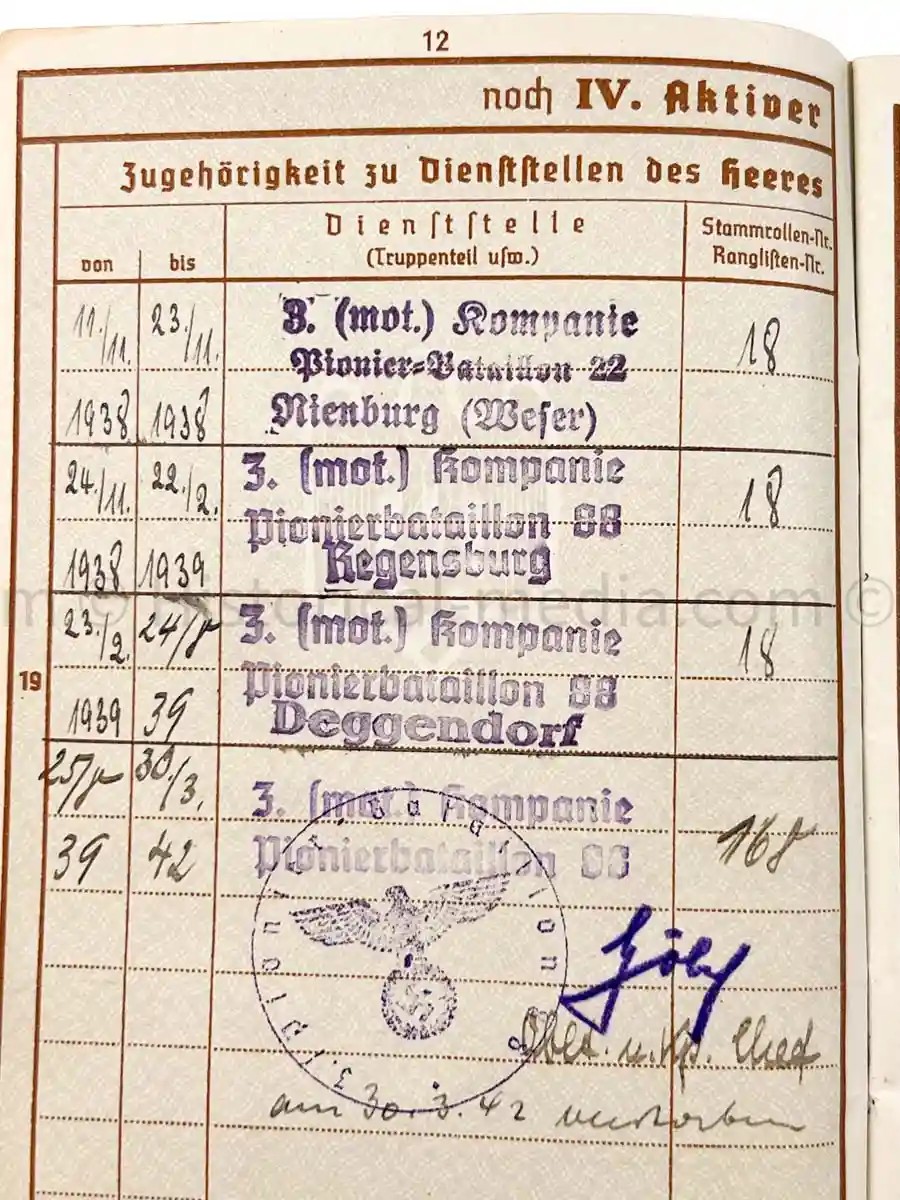 12
noch IV. Aktiver
Zugehörigkeit zu Dienststellen des Heeres
Dienststelle
(Truppenteil usw.)
Stammrollen-Nr.
Ranglisten-Nr.
von bis
11./11. 23./11. 3. (mot.) Kompanie
Pionier-Bataillon 22 18
1938 1938 Nienburg (Weser)
24./11. 22./2. 3. (mot.) Kompanie
Pionierbataillon 88 18
1938 1939 Regensburg
m © historical-media.com ©
23./2. 24/8 3. (mot.) Kompanie 18
19
Pionierbataillon 88
1939 39 Deggendorf
25/8 30./3. 3. (mot.) Kompanie
39 42 Pionierbataillon 88 168
3. Pionier-Bataillon 88
Oblt. u. Kp. Chef
am 30.3.42 verstorben